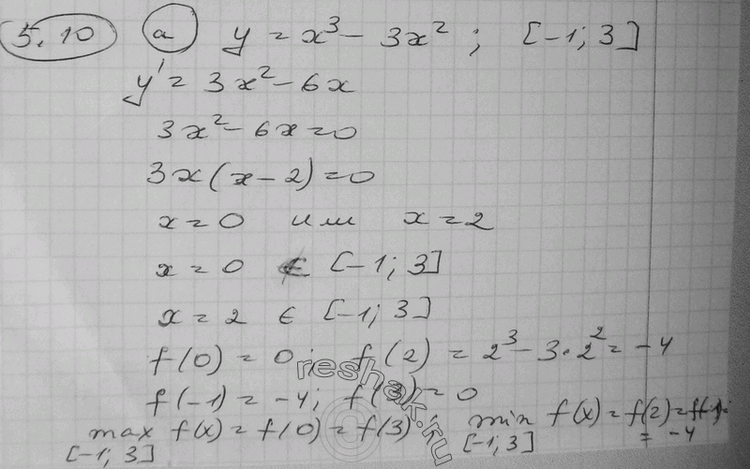 5.10 а) y = x³ - 3x² ; [-1; 3]
y' = 3x² - 6x
3x² - 6x = 0
3x(x - 2) = 0
x = 0 или x = 2
x = 0 ∈ [-1; 3]
x = 2 ∈ [-1; 3]
f(0) = 0; f(2) = 2³ - 3·2² = -4
f(-1) = -4; f(3) = 0
max f(x) = f(0) = f(3) min f(x) = f(2) = f(-1) =
[-1; 3] [-1; 3] = -4
reshak.ru